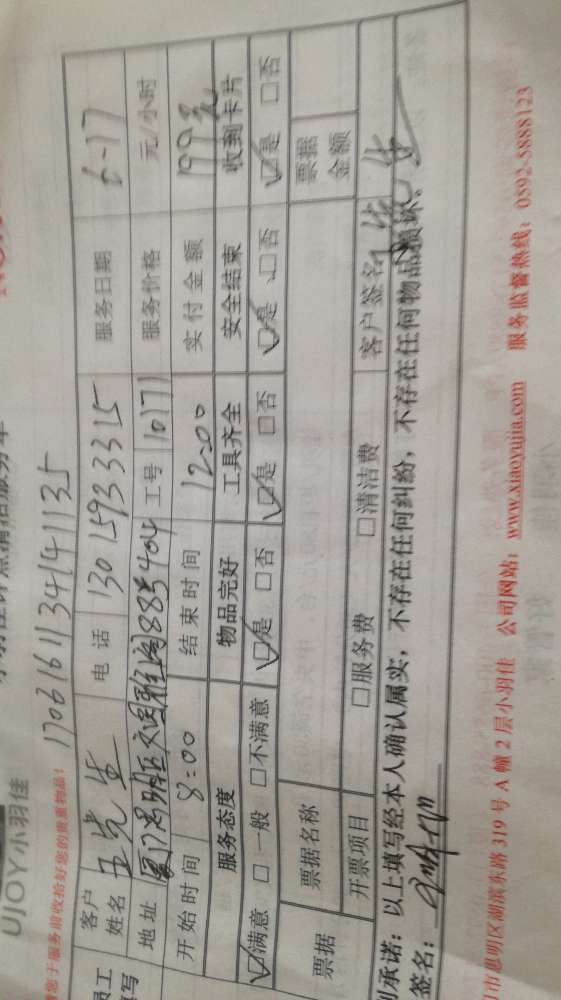 UJOY小羽佳
于服务前收拾好您的贵重物品!
1706161134141135
员工
填写
客户
姓名
王先生
电 话
13015933315
服务日期
6-17
地址
885404
工号
10171
服务价格
元/小时
开始时间
8:00
结束时间
12:00
实付金额
199元
服务态度
物品完好
工具齐全
安全结束
收到卡片
☑满意 □一般 □不满意
☑是 □否
☑是 □否
☑是 □否
☑是 □否
票据
票据名称
票据
金额
开票项目
□服务费
□清洁费
客户签名
承诺:以上填写经本人确认属实,不存在任何纠纷,不存在任何物品损坏。
签名:
市思明区湖滨东路319号A幢2层小羽佳 公司网站:www.xiaoyujia.com 服务监督热线:0592-5888123